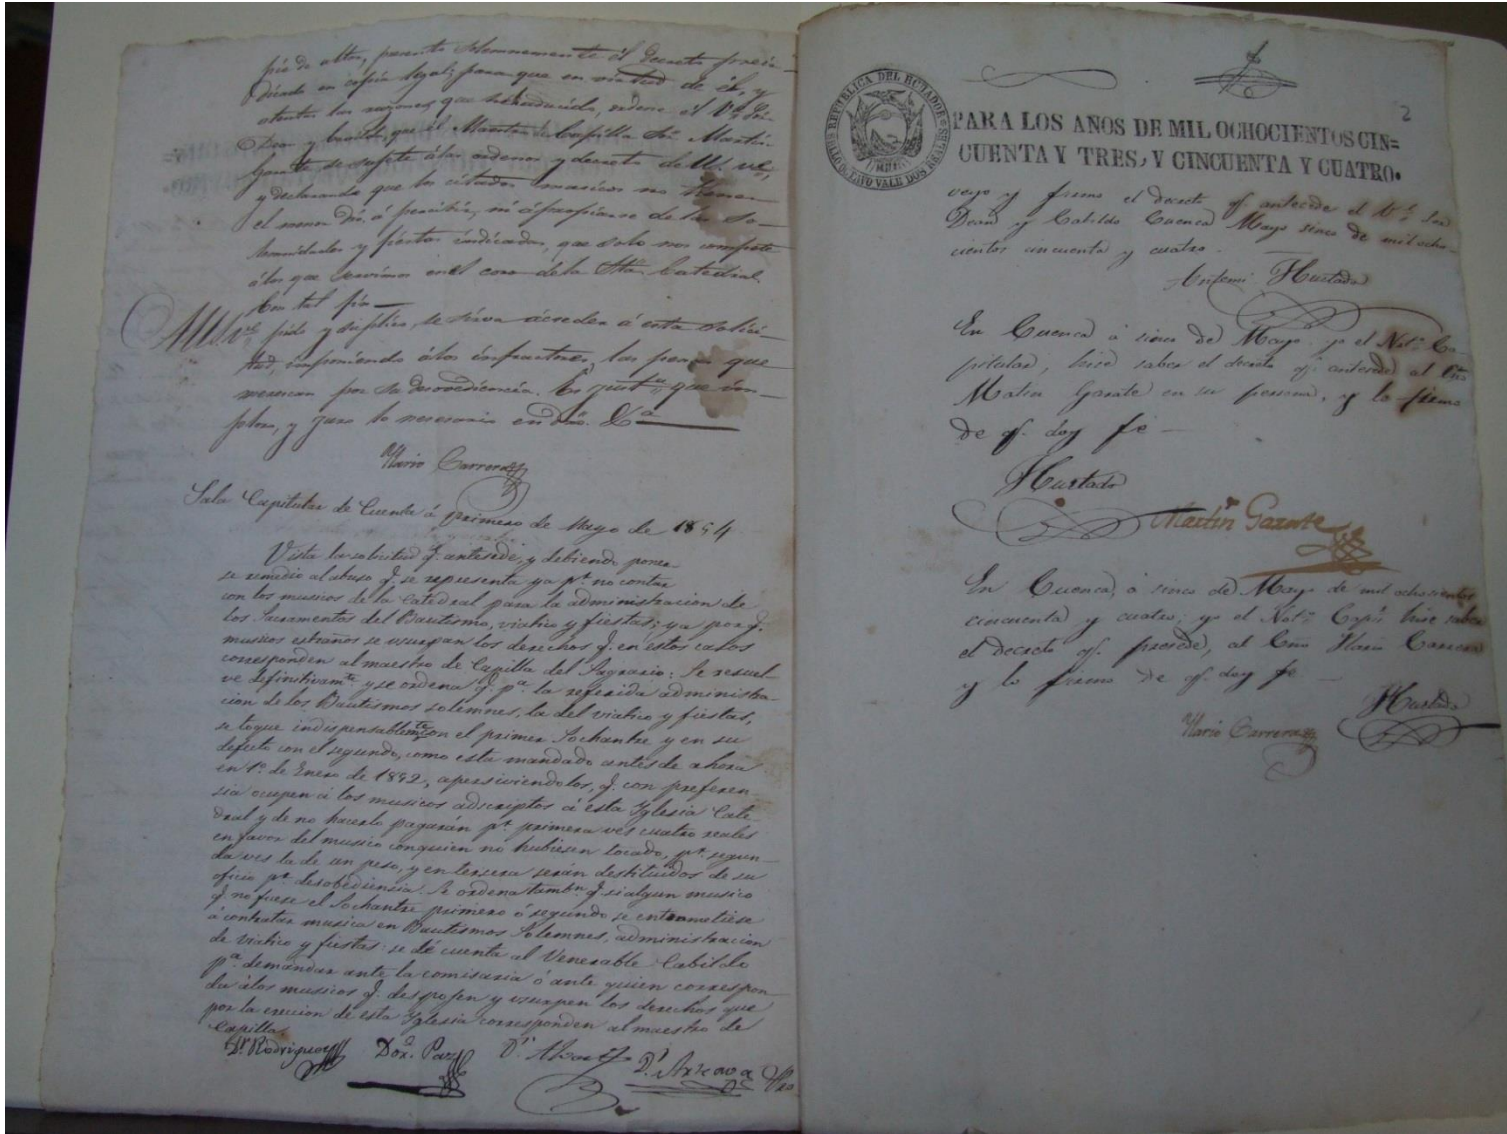 pié de altar, presento solemnemente el decreto precia-
dicado en copia legal; para que en virtud de él, y
atentas las razones que he deducido, ordene el Ve
Dean y Cavildo, que el Maestro de Capilla Sr. Martin
Garate se sujete á las ordenes y decreto de U. Ve,
y declarando que los citados musicos no tienen
el menor dro. á percibir, ni á propiarse de las so-
lemnidades y fiestas indicadas, que solo nos compete
á los que servimos en el coro de la Sta. Catedral.
Con tal fin
pido y suplico, se sirva acceder á esta solici-
tud, imponiendo á los infractores, las penas que
meresean por su desovediencia. Es justa que im-
ploro, y juro lo necesario en dro. Da.
Ylario Carrera
Sala Capitular de Cuenca á primero de Mayo de 1854
Vista la solicitud q. antesede, y debiendo poner
se remedio al abuso q. se representa ya pr. no contar
con los musicos de la Catedral para la administracion de
los Sacramentos del Bautismo, viatico y fiestas; ya por q.
musicos estraños se usurpan los derechos q. en estos casos
corresponden al maestro de Capilla del Sagrario: Se resuel-
ve definitivamte. y se ordena q. pa. la referida administra-
cion de los Bautismos solemnes, la del viatico y fiestas,
se toque indispensablemte. con el primer Sochantre y en su
defecto con el segundo, como esta mandado antes de ahora
en 1o. de Enero de 1852, apersiviendolos, q. con preferen
sia ocupen á los musicos adscriptos á esta Yglesia Cate-
dral y de no hacerlo pagarán pr. primera ves cuatro reales
en favor del musico con quien no hubiesen tocado, pr. segun-
da ves la de un peso, y en tercera serán destituidos de su
oficio pr. desobediencia. Se ordena tambn. q. si algun musico
q. no fuese el Sochantre primero ó segundo se entrometiese
á contratar musica en Bautismos Solemnes, administracion
de viatico y fiestas: se dé cuenta al Venerable Cabildo
pa. demandar ante la comisaria ó ante quien correspon-
da á los musicos q. despojen y usurpen los derechos que
por la ereccion de esta Yglesia corresponden al maestro de
Capilla.
Dr. Rodriguez Dor. Paz Dr. Alvarez Dr. Arzova
2
REPUBLICA DEL ECUADOR
SELLO OCTAVO VALE DOS REALES
PARA LOS AÑOS DE MIL OCHOCIENTOS CIN=
CUENTA Y TRES, Y CINCUENTA Y CUATRO.
veyo y firmo el decreto q. antecede el Ve. Sor
Dean y Cabildo Cuenca Mayo sinco de mil ocho-
cientos cincuenta y cuatro.
Antemi Hurtado
En Cuenca á sinco de Mayo yo el Noto. Ca-
pitular, hice saber el decreto q. antesede al
Martin Garate en su persona, y lo firma
de q. doy fe
Hurtado
Martin Garate
En Cuenca, á sinco de Mayo de mil ochosientos
cincuenta y cuatro; yo el Noto. Capr. hise saber
el decreto q. presede, al Cno Ylario Carrera
y lo firma de q. doy fe
Hurtado
Ylario Carrera